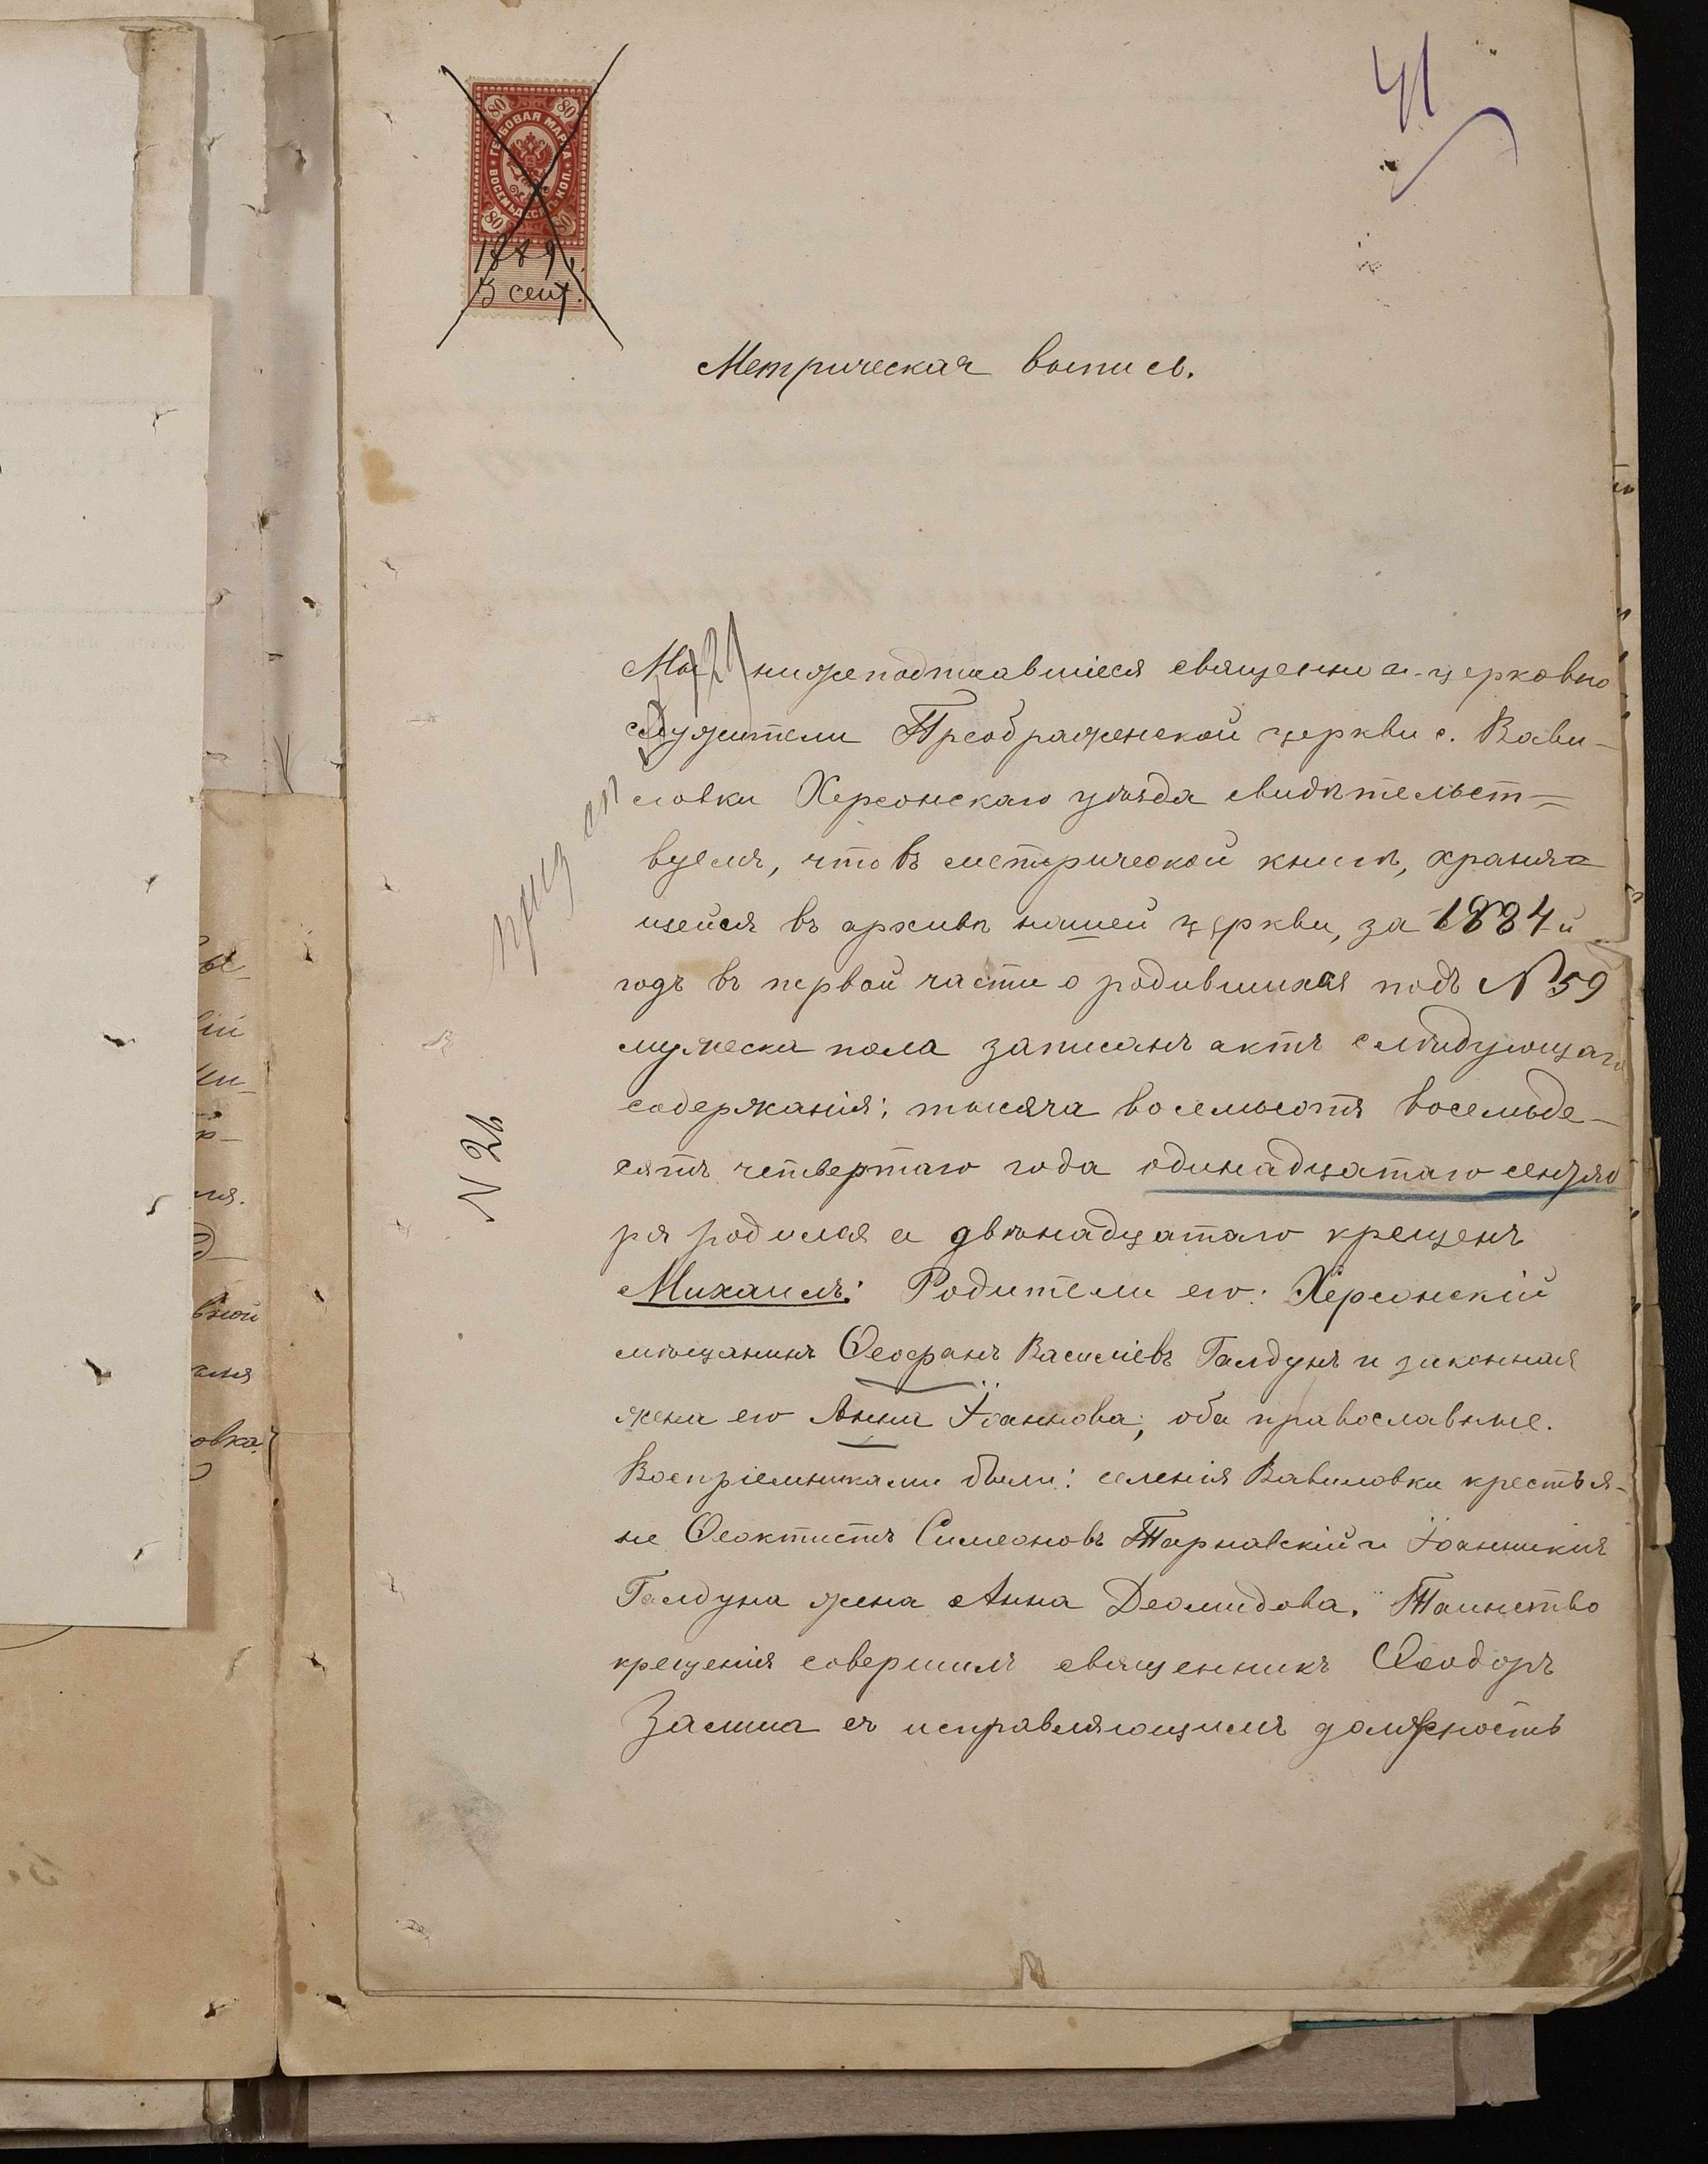 41
80 80
ГЕРБОВАЯ МАРКА
ВОСЕМЬДЕСЯТЪ КОП.
80 80
1889 г.
5 сент.
Метрическая выпись.
Мы нижеподписавшіеся священно и церковно
служители Преображенской церкви с. Вави-
ловки Херсонскаго уѣзда свидѣтельст=
вуемъ, что въ метрической книгѣ, храня=
щейся въ архивѣ нашей церкви, за 1884 й
годъ въ первой части о родившихся подъ № 59
мужеска пола записанъ актъ слѣдующаго
содержанія: тысяча восемьсотъ восемьде-
сятъ четвертаго года одинадцатаго сентяб
ря родился а двѣнадцатаго крещенъ
Михаилъ: Родители его: Херсонскій
мѣщанинъ Ѳеофанъ Василіевъ Галдунъ и законная
жена его Анна Іоаннова, оба православные.
Воспріемниками были: селенія Вавиловки крестья-
не Ѳеоктистъ Симеоновъ Тарнавскій и Іоанникія
Галдуна жена Анна Деомидова. Таинство
крещенія совершилъ священникъ Ѳеодоръ
Замша съ исправляющимъ должность
№ 26
ы-
ній
ли-
р-
ля.
вной
ання
овка